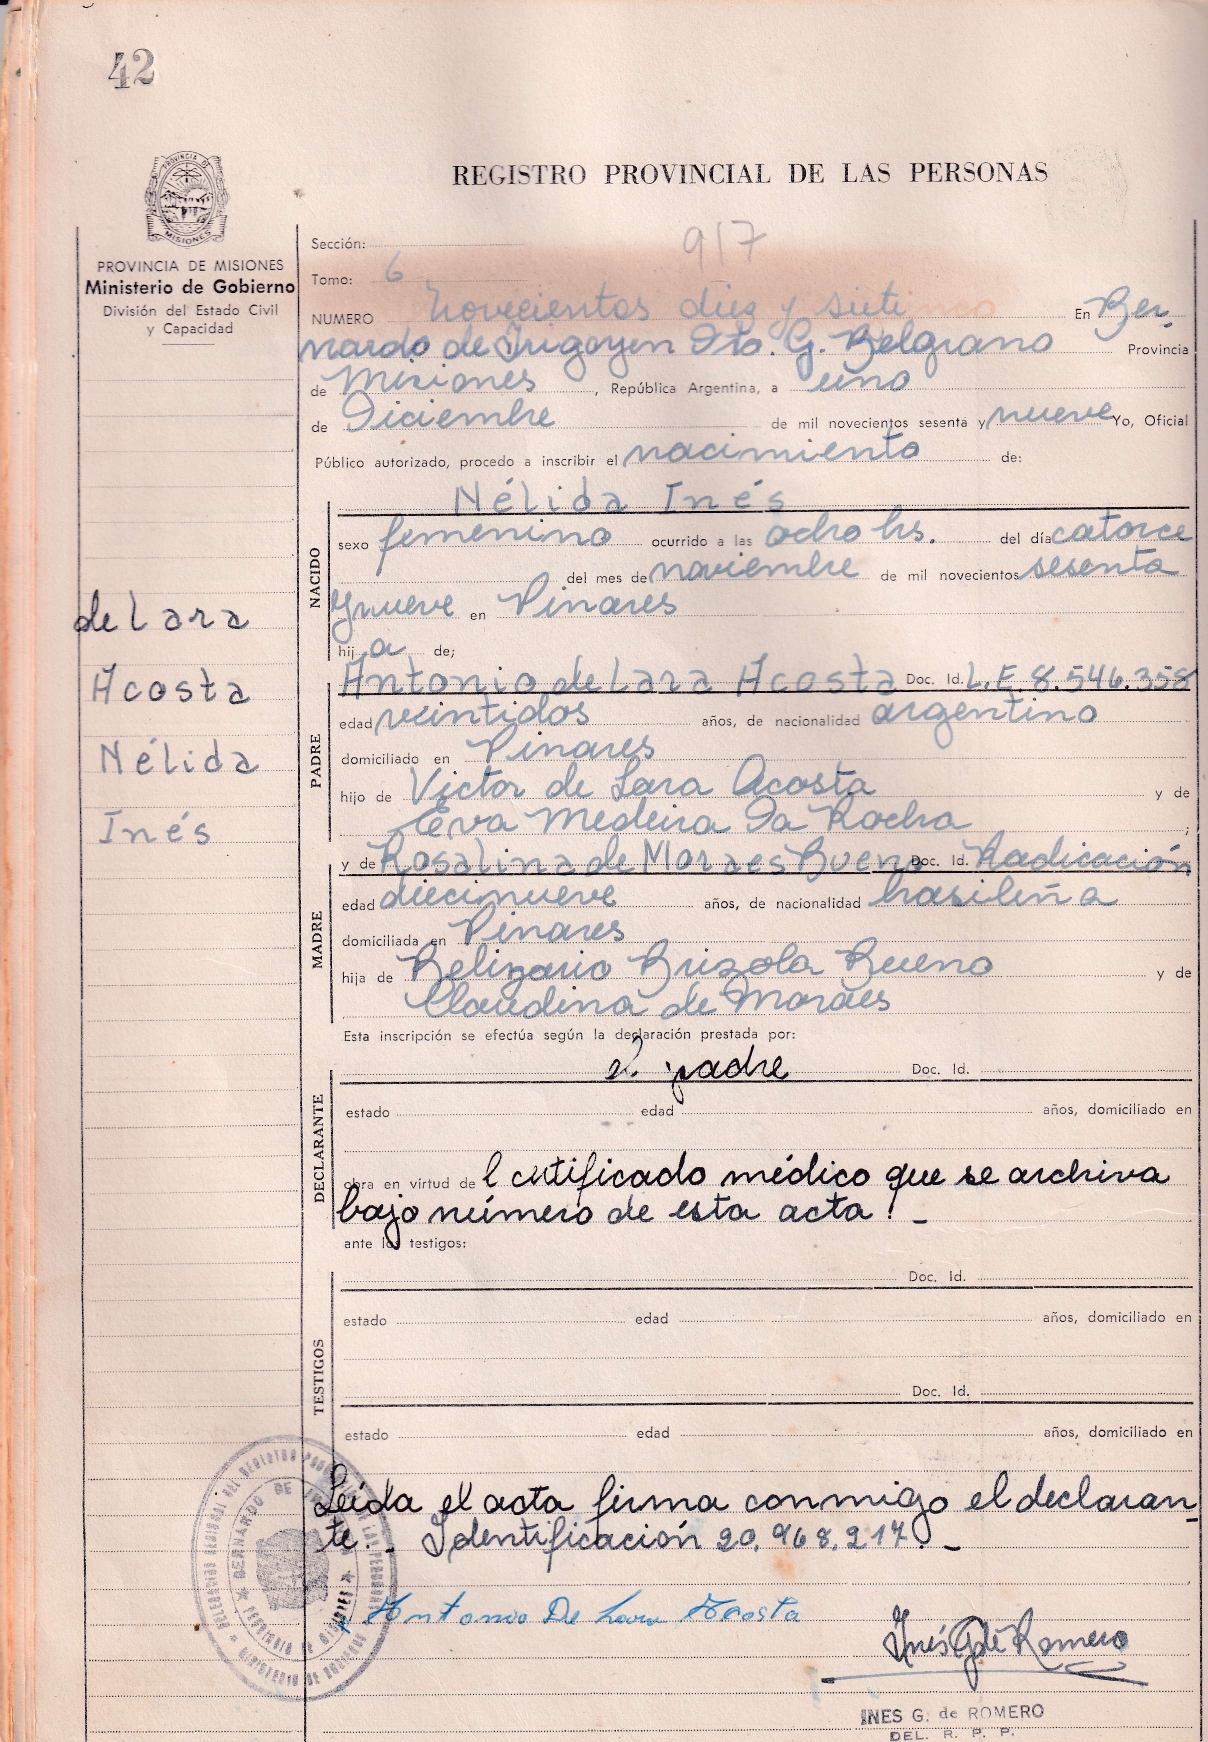 42
PROVINCIA DE MISIONES
REGISTRO PROVINCIAL DE LAS PERSONAS
PROVINCIA DE MISIONES
Ministerio de Gobierno
División del Estado Civil
y Capacidad
de Lara
Acosta
Nélida
Inés
Sección: 917
Tomo: 6
NUMERO novecientos diez y siete En Ber-
nardo de Irigoyen Dto. G. Belgrano Provincia
de Misiones, República Argentina, a uno
de Diciembre de mil novecientos sesenta y nueve Yo, Oficial
Público autorizado, procedo a inscribir el nacimiento de:
NACIDO
Nélida Inés
sexo femenino ocurrido a las ocho hs. del día catorce
del mes de noviembre de mil novecientos sesenta
y nueve en Pinares
hij a de;
PADRE
Antonio de Lara Acosta Doc. Id. L.E. 8.546.358
edad veintidos años, de nacionalidad argentino
domiciliado en Pinares
hijo de Victor de Lara Acosta y de
Eva Medeira Da Rocha ;
MADRE
y de Rosalina de Moraes Bueno Doc. Id. Radicación
edad diecinueve años, de nacionalidad brasileña
domiciliada en Pinares
hija de Belizario Brizola Bueno y de
Claudina de Moraes
Esta inscripción se efectúa según la declaración prestada por:
DECLARANTE
el padre Doc. Id.
estado edad años, domiciliado en
obra en virtud de l certificado médico que se archiva
bajo número de esta acta!_
ante los testigos:
TESTIGOS
Doc. Id.
estado edad años, domiciliado en
Doc. Id.
estado edad años, domiciliado en
Leída el acta firma conmigo el declaran-
te._ Identificación 20.968.217._
Antonio De Lara Acosta
Inés G de Romero
INES G. de ROMERO
DEL. R. P. P.